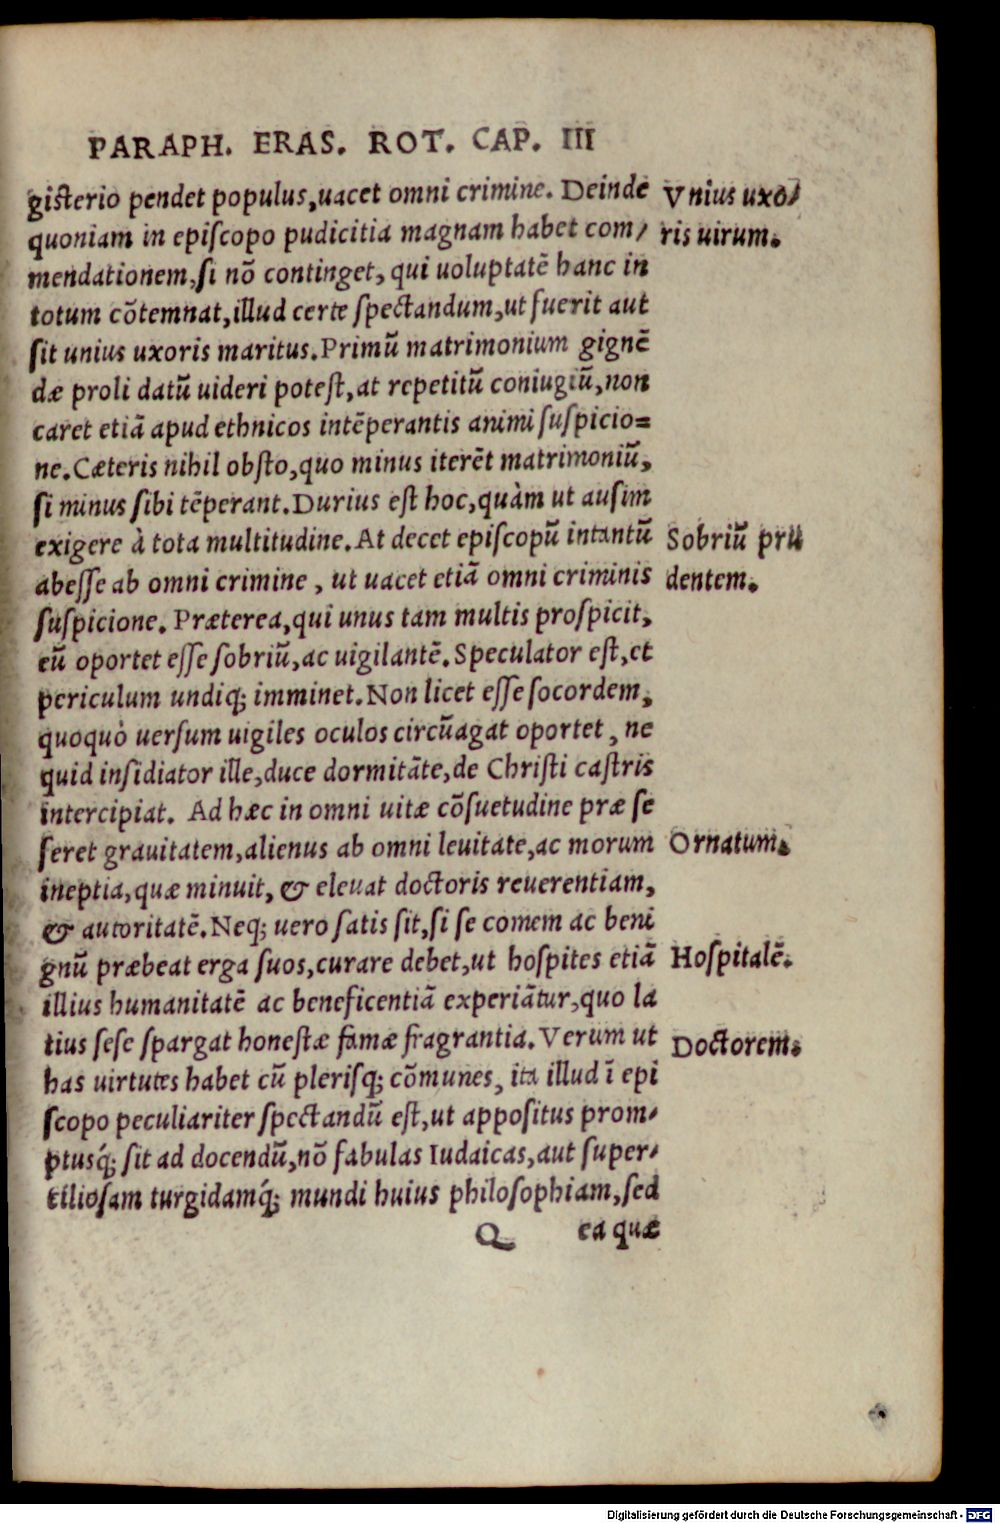 PARAPH. ERAS. ROT. CAP. III
gisterio pendet populus, uacet omni crimine. Deinde
quoniam in episcopo pudicitia magnam habet com/
mendationem, si nō continget, qui uoluptatē hanc in
totum cōtemnat, illud certe spectandum, ut fuerit aut
sit unius uxoris maritus. Primū matrimonium gignē
dæ proli datū uideri potest, at repetitū coniugiū, non
caret etiā apud ethnicos intēperantis animi suspicio=
ne. Cæteris nihil obsto, quo minus iterēt matrimoniū,
si minus sibi tēperant. Durius est hoc, quàm ut ausim
exigere à tota multitudine. At decet episcopū intantū
abesse ab omni crimine, ut uacet etiā omni criminis
suspicione. Præterea, qui unus tam multis prospicit,
eū oportet esse sobriū, ac uigilantē. Speculator est, et
periculum undiq; imminet. Non licet esse socordem,
quoquò uersum uigiles oculos circūagat oportet, ne
quid insidiator ille, duce dormitāte, de Christi castris
intercipiat. Ad hæc in omni uitæ cōsuetudine præ se
feret grauitatem, alienus ab omni leuitate, ac morum
ineptia, quæ minuit, & eleuat doctoris reuerentiam,
& autoritatē. Neq; uero satis sit, si se comem ac beni
gnū præbeat erga suos, curare debet, ut hospites etiā
illius humanitatē ac beneficentiā experiātur, quo la
tius sese spargat honestæ famæ fragrantia. Verum ut
has uirtutes habet cū plerisq; cōmunes, ita illud ī epi
scopo peculiariter spectandū est, ut appositus prom/
ptusq́; sit ad docendū, nō fabulas Iudaicas, aut super/
ciliosam turgidamq́; mundi huius philosophiam, sed
Q ea quæ
Vnius uxo/
ris uirum.
Sobriū pru
dentem.
Ornatum.
Hospitalē.
Doctorem.
Digitalisierung gefördert durch die Deutsche Forschungsgemeinschaft - DFG